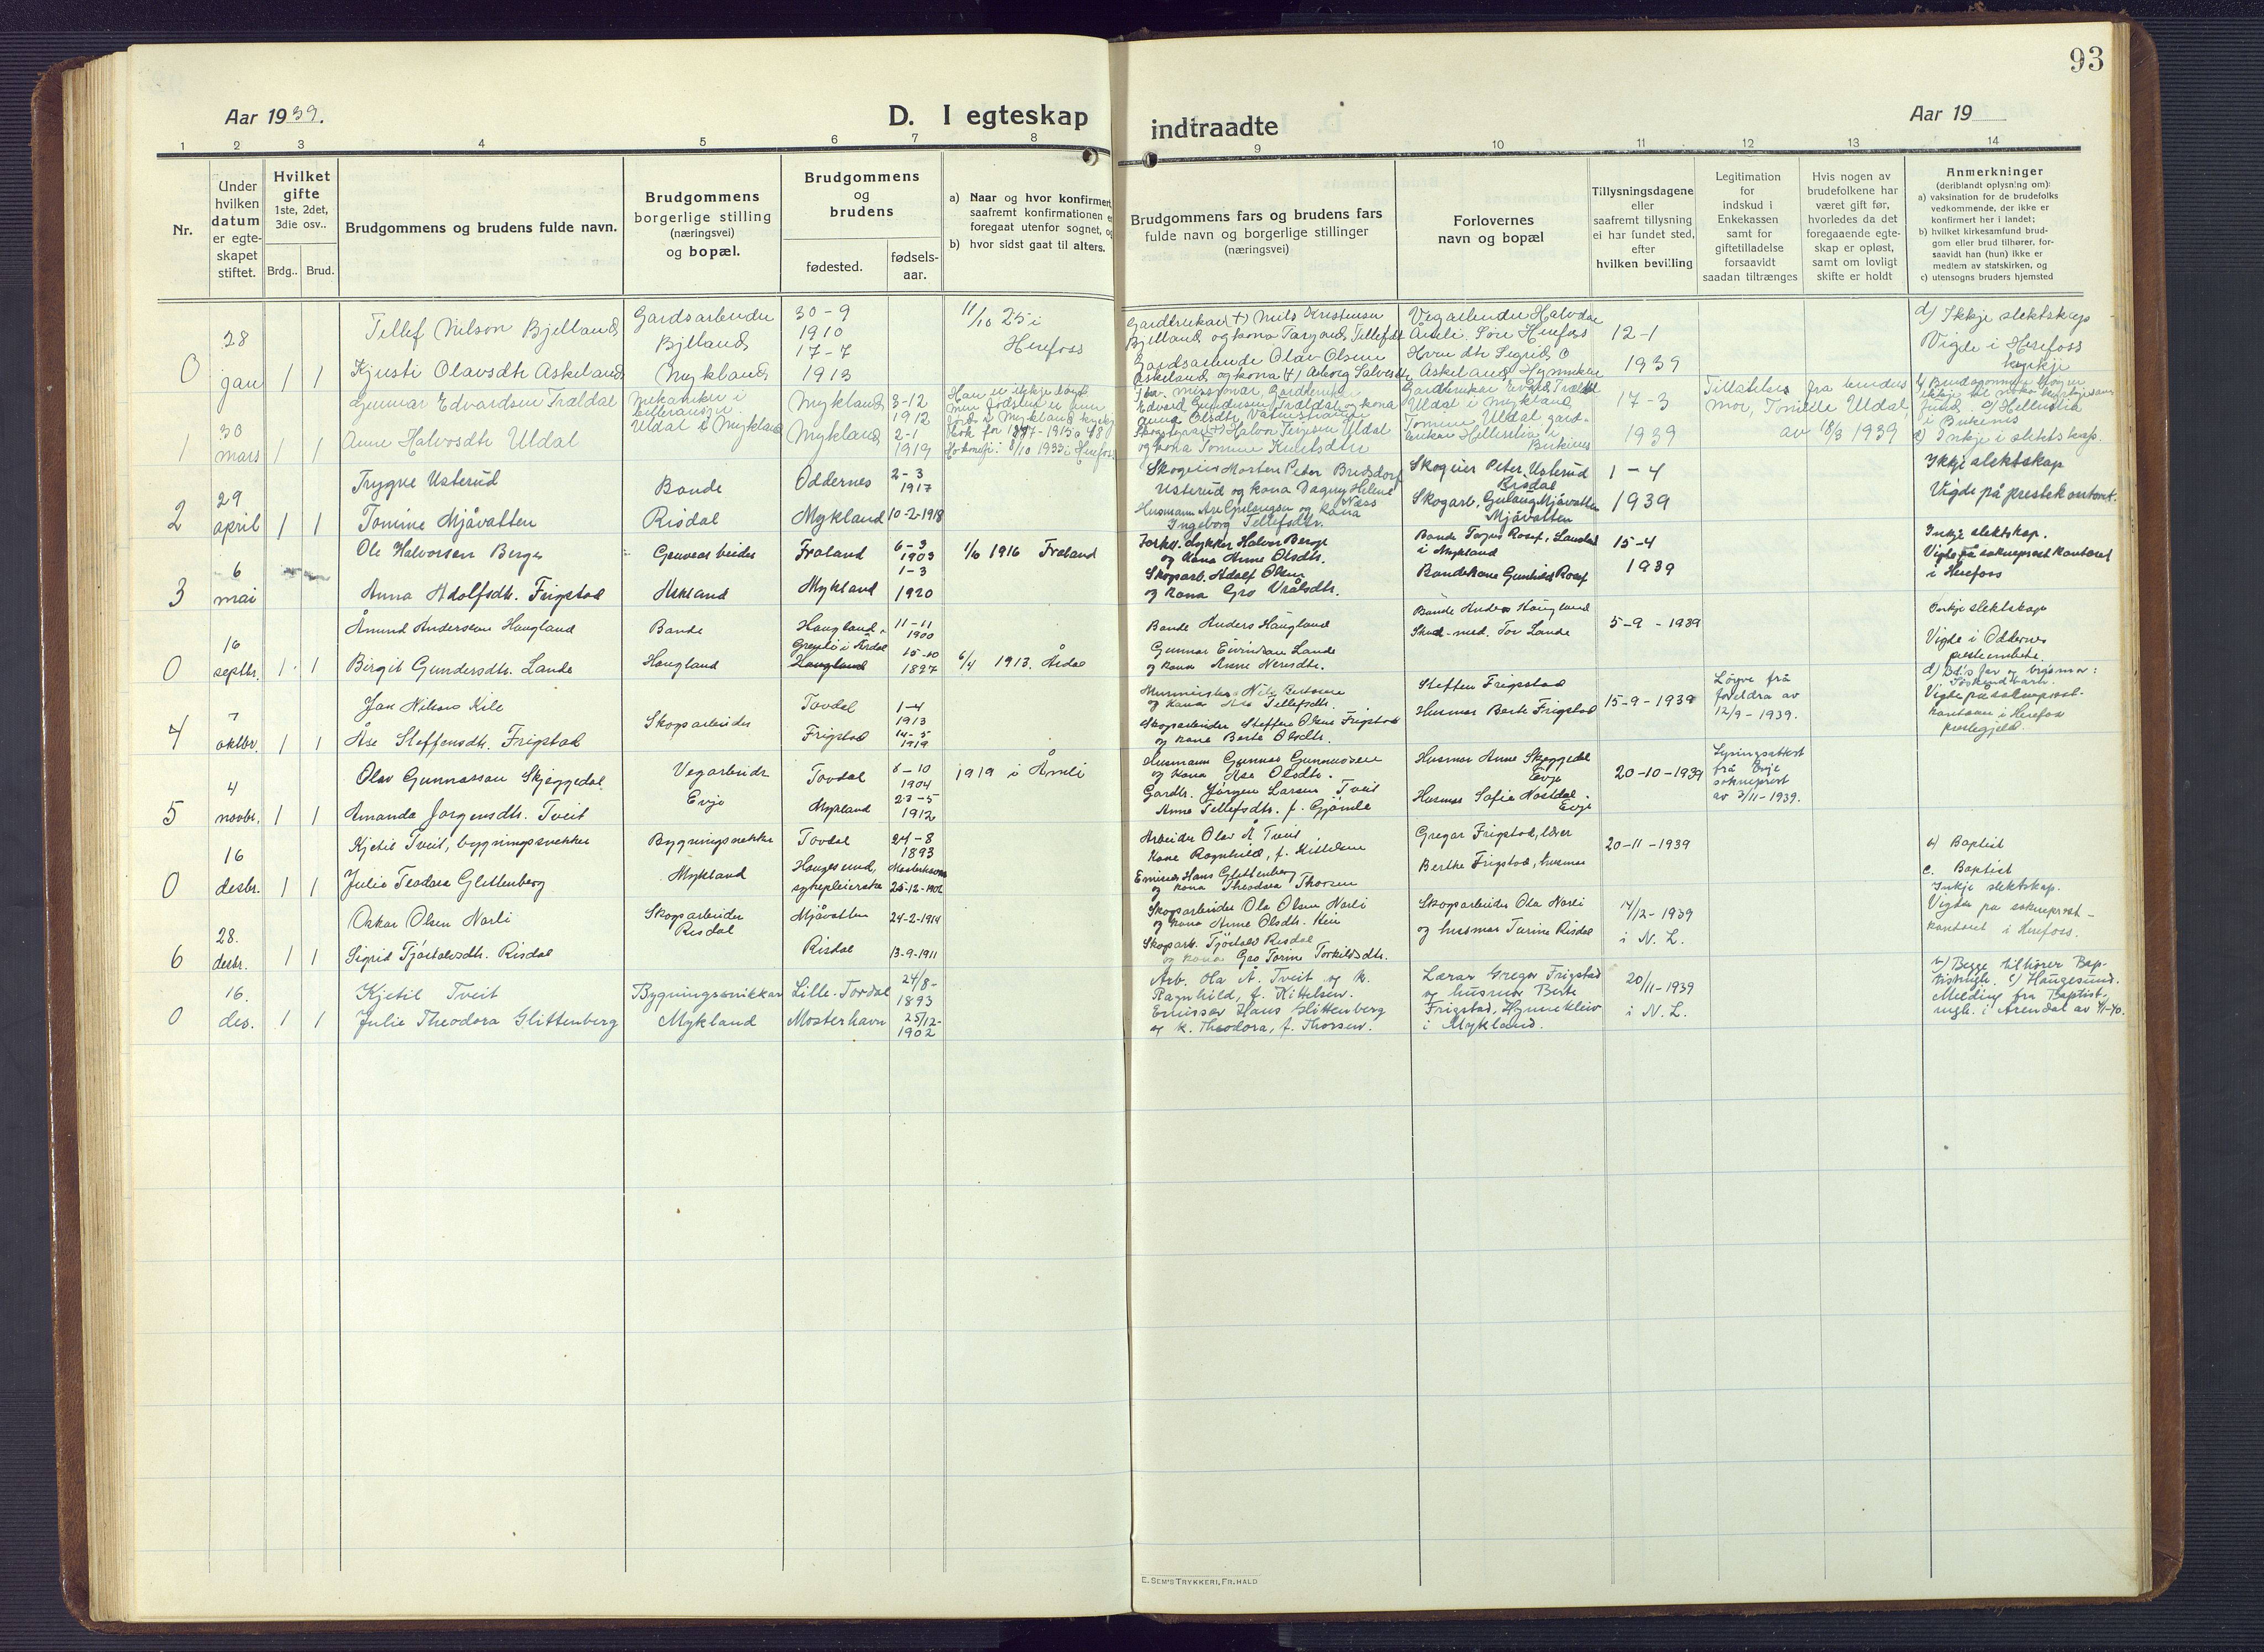 93
Aar 1939.
D. I egteskap
indtraadte
Aar 19
1 2 3 4 5 6 7 8 9 10 11 12 13 14
Nr.
Under
hvilken
datum
er egte-
skapet
stiftet.
Hvilket
gifte
1ste, 2det,
3die osv..
Brdg..
Brud.
Brudgommens og brudens fulde navn.
Brudgommens
borgerlige stilling
(næringsvei)
og bopæl.
Brudgommens
og
brudens
fødested.
fødsels-
aar.
a) Naar og hvor konfirmert,
saafremt konfirmationen e
foregaat utenfor sognet, og
b) hvor sidst gaat til alters.
Brudgommens fars og brudens fars
fulde navn og borgerlige stillinger
(næringsvei)
Forlovernes
navn og bopæl
Tillysningsdagene
eller
saafremt tillysning
ei har fundet sted,
efter
hvilken bevilling
Legitimation
for
indskud i
Enkekassen
samt for
giftetilladelse
forsaavidt
saadan tiltrænges
Hvis nogen av
brudefolkene har
været gift før,
hvorledes da det
foregaaende egte-
skap er opløst,
samt om lovligt
skifte er holdt
Anmerkninger
(deriblandt oplysning om):
a) vaksination for de brudefolks
vedkommende, der ikke er
konfirmert her i landet;
b) hvilket kirkesamfund brud-
gom eller brud tilhører, for-
saavidt han (hun) ikke er
medlem av statskirken, og
c) utensogns bruders hjemsted
0
28
jan
1 1
Tellef Nilson Bjelland
Kjersti Olavsdtr Askeland
Gardsarbeider
Bjelland
Mykland
30-9
1910
17-7
1913
11/10 25 i
Herefoss
Gardbrukar (+) Nils Kristensen
Bjelland og kona Targjerd Tellefsdtr
Gardsarbeide Olav Olsen
Askeland og kona (+) Aaborg Salvesdtr
Vegarbeider Halvdan
Åmli. Søre Herefoss
Askeland
12-1
1939
d) Ikkje slektskap
Vigde i Herefoss
kyrkje
1
30
mars
1 1
Gunnar Edvardsen Trældal
Anne Halvorsdtr Uldal
Mekaniker i
Uldal i Mykland
Mykland
Mykland
3-12
1912
2-1
1919
Han er ikkje døypt
8/10 1933 i Herefoss
Edvard Gundersen Trældal og kona
Anna Olsdtr.
Halvor Terjesen Uldal
og kona Tomine Knutsdtr
Uldal i Mykland
Tomine Uldal, gard-
brukar
Birkenes
17-3
1939
Tillatelse fra brudens
mor, Tomine Uldal,
av 18/3 1939
i Birkenes
2
29
april
1 1
Trygve Usterud
Tomine Mjåvatten
Bonde
Risdal
Oddernes
Mykland
2-3
1917
10-2-1918
Skogeier Morten Peter Bredsdorf
Usterud og kona Dagny Helene
Næss
Husmann Are Gunlaugsen og kona
Ingeborg Tellefsdtr.
Skogeier Peter Usterud
Risdal
Skogarb. Gunlaug Mjåvatten
Mjåvatten
1-4
1939
Ikkje slektskap
Vigde på prestekontoret.
3
6
mai
Ole Halvorsen Berge
Anna Adolfsdtr. Frigstad
Gruvearbeider
Askland
Froland
Mykland
6-3
1903
1-3
1920
1/10 1916 Froland
Halvor Berge
og kona Anne Olsdtr.
Skogarb. Adolf Olsen
og kona Gro Vrålsdtr.
i Mykland
Bondekone Gunhild Rosef
15-4
1939
Inkje slektskap.
Vigde på sokneprestkontoret
i Herefoss
0
16
septbr.
1 1
Åmund Anderssen Haugland
Birgit Gundersdtr. Lande
Bonde
Haugland
Haugland
Haugland
11-11
1900
15-10
1897
6/4 1913. Årdal
Bonde Anders Haugland
Gunnar Eivindson Lande
og kona Anne Neresdtr.
Bonde Anders Haugland
Tor Lande
5-9-1939
Inkje slektskap
Vigde i Oddernes
prestembete.
4
7
oktbr.
1 1
Jon Nilsen Kile
Åse Steffensdtr. Frigstad
Skogsarbeider
Tovdal
Frigstad
1-4
1913
14-5
1919
Nils Bertsen
og kona Åse Tellefsdtr.
Skogsarbeider Steffen Olsen Frigstad
og kona Berte Olsdtr.
Steffen Frigstad
Husmor Berte Frigstad
15-9-1939
Løyve frå
foreldra av
12/9-1939.
Søskendbarn.
Vigde på sokneprest-
kontoret i Herefoss
prestegjeld.
5
4
novbr.
1 1
Olav Gunnarsson Skjeggedal
Amanda Jørgensdtr. Tveit
Vegarbeider
Evje
Tovdal
Mykland
8-10
1904
23-5
1912
1919 i Åmli
Husmann Gunnar Gunnarsen
og kona Åse Olsdtr.
Gardbr. Jørgen Larsen Tveit
Anne Tellefsdtr. f. Gjømle
Husmor Anne Skjeggedal
Evje
Husmor Sofie Nostdal.
Evje
20-10-1939
Lysingsattest
frå Evje
sokneprest
av 3/11-1939.
0
16
desbr.
1 1
Kjetil Tveit, bygningssnekker
Julie Teodora Glittenberg
Bygningssnekker
Mykland
Tovdal
Haugesund,
sykepleierske
24-8
1893
Mosterhavn
25-12-1902
Arbeider Olav Å. Tveit
Kone Ragnhild, f. Kittelsen
Emissær Hans Glittenberg
og kona Theodora Thorsen
Gregar Frigstad, lærer
Berthe Frigstad, husmor
20-11-1939
b) Baptist
c. Baptist
6
28.
desbr.
1 1
Oskar Olsen Norli
Sigrid Tjøstolvsdtr. Risdal
Skogsarbeider
Risdal
Mjåvatten
Risdal
24-2-1914
13-9-1911
Skogsarbeider Ola Olsen Norli
og kona Anne Olsdtr.
Skogarb. Tjøstolv Risdal
og kona Gro Torine Torkilsdtr.
Skogsarbeider Ola Norli
og husmor Turine Risdal
14/12-1939
i N. L.
Inkje slektskap.
Vigde på sokneprest-
kontoret i Herefoss.
0
16.
des.
1 1
Kjetil Tveit
Julie Theodora Glittenberg
Bygningssnikkar
Mykland
Lille-Tovdal
Mosterhavn
24/8-
1893
25/12-
1902
Arb. Ola Å. Tveit og k.
Ragnhild, f. Kittelsen.
Emissær Hans Glittenberg
og k. Theodora, f. Thorsen.
Lærar Gregar Frigstad
og husmor Berte
Frigstad, Hynnekleiv
i Mykland.
20/11-1939
i N. L.
b) Begge tilhører Bap-
tistmgh. c) Haugesund.
Melding fra Baptist-
mgh. i Arendal av 4/1-40.
E. SEM'S TRYKKERI, FR.HALD